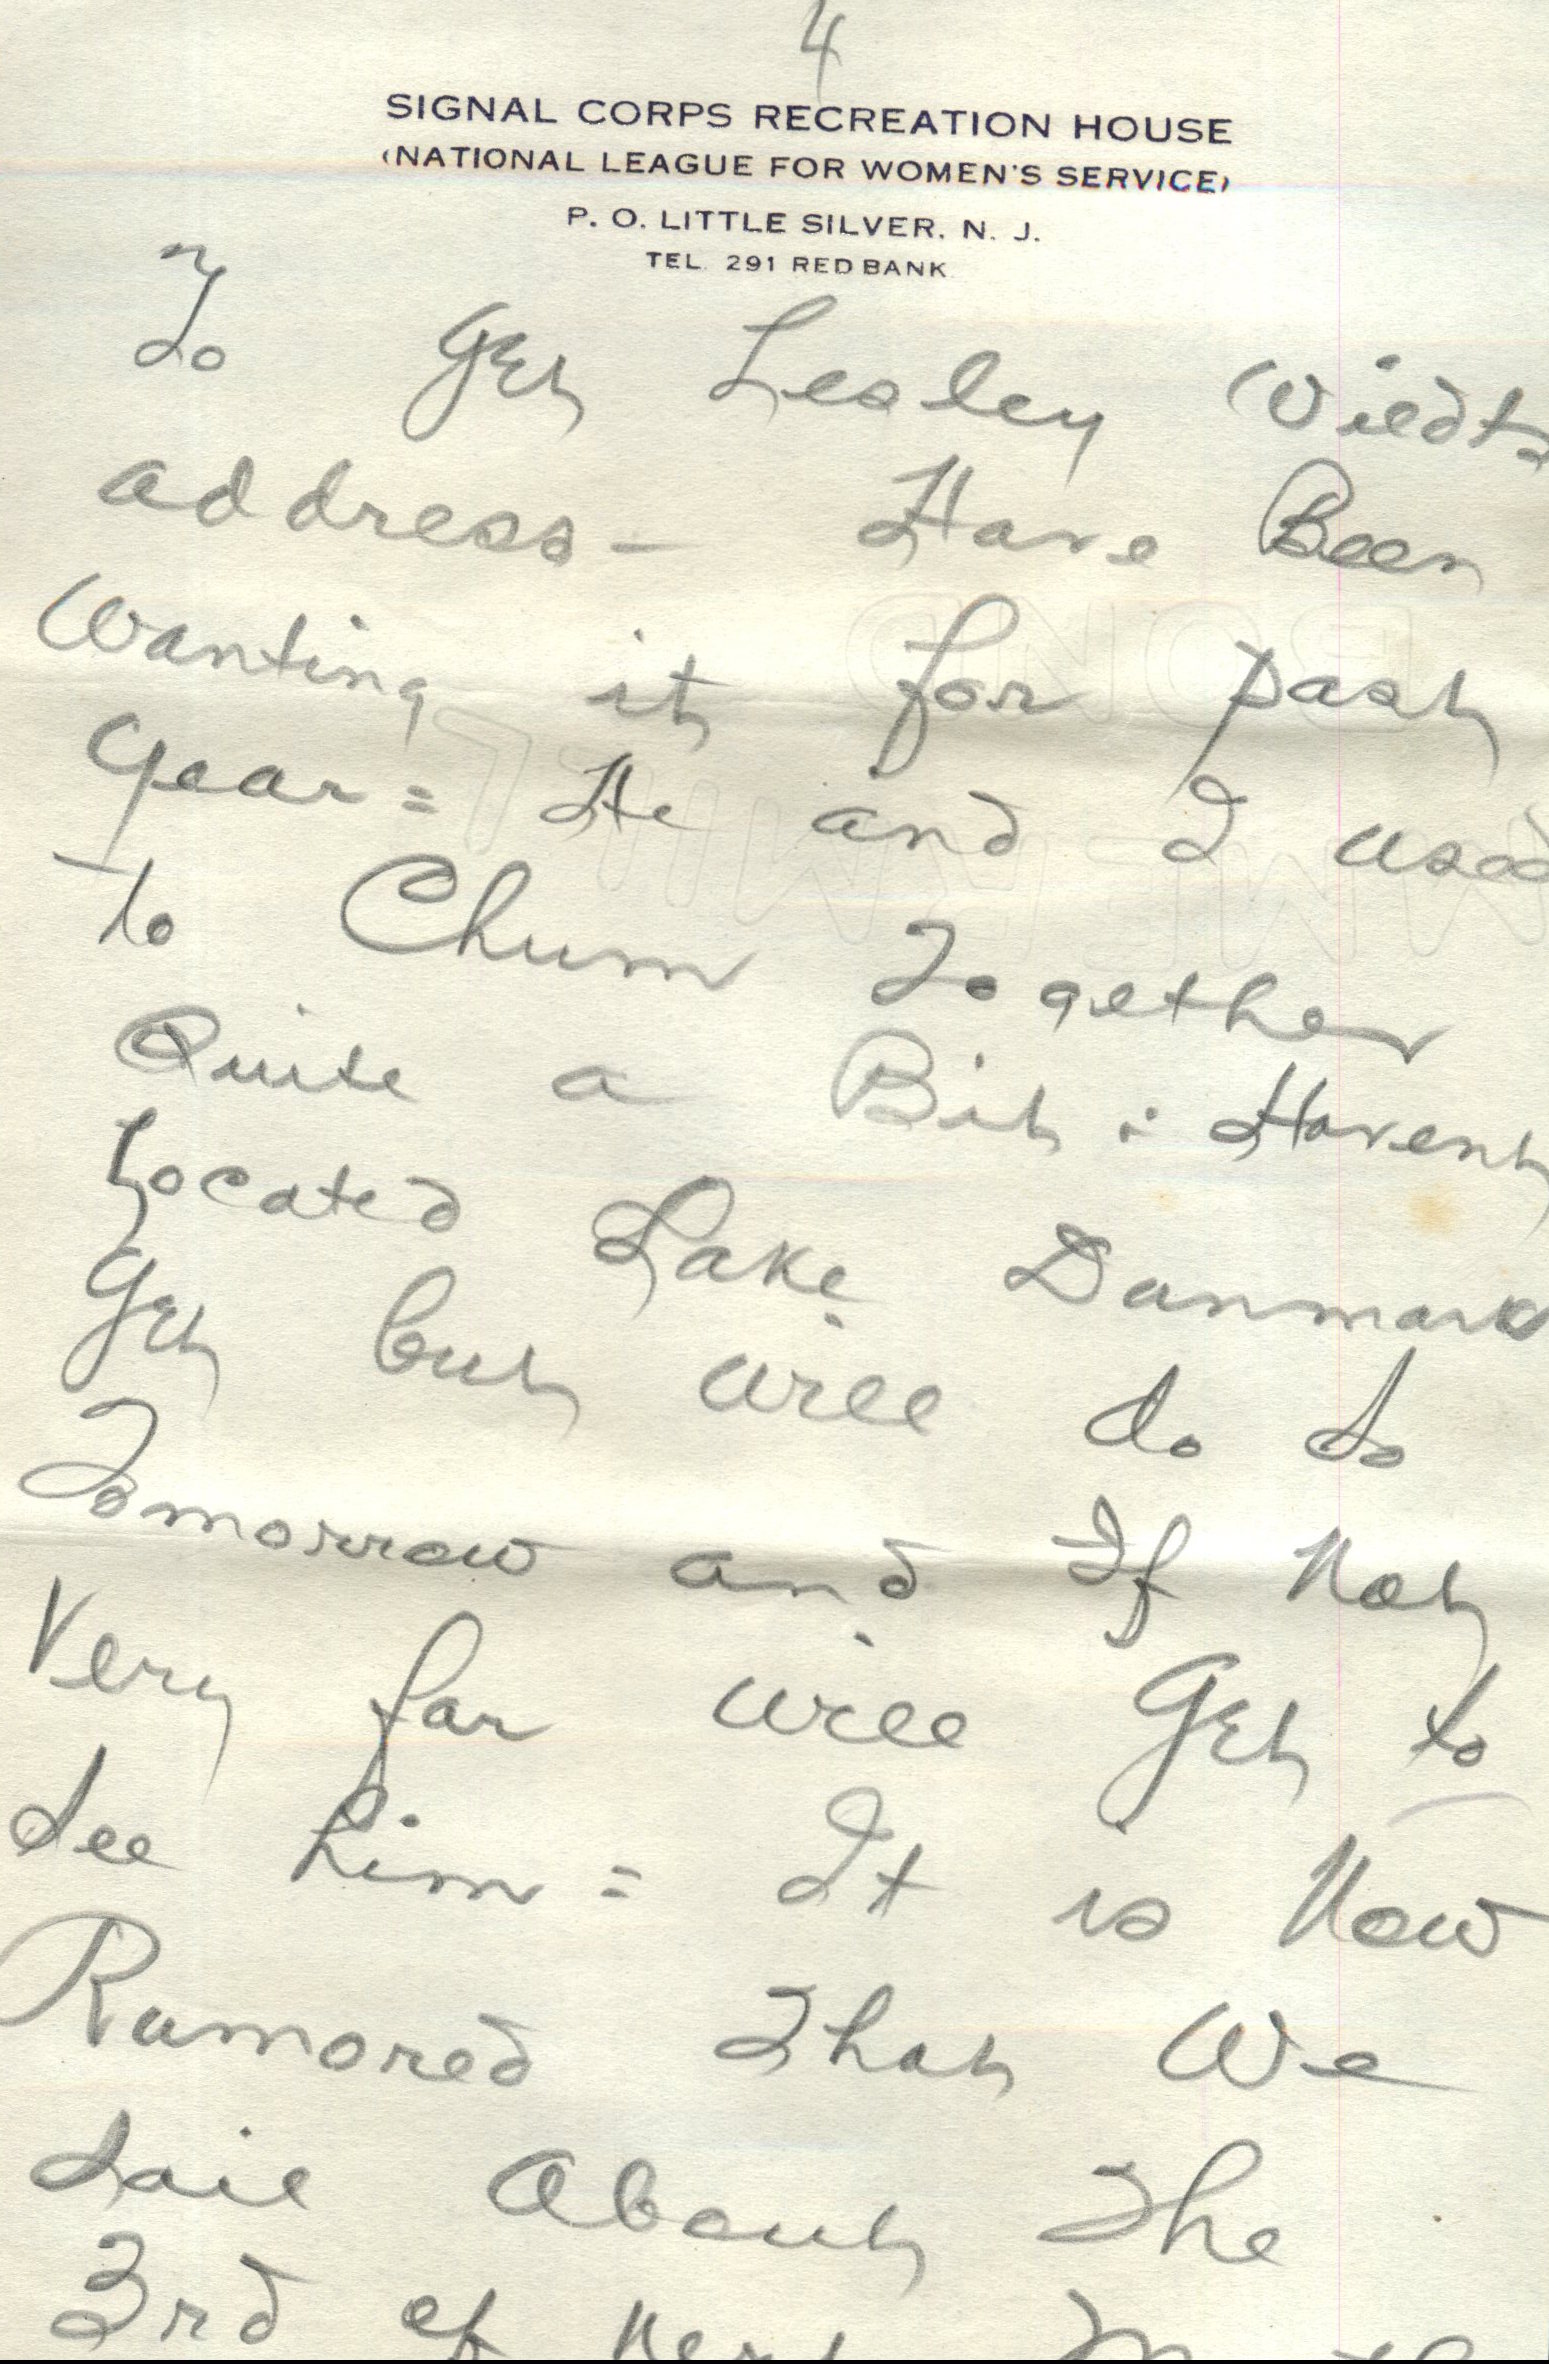 4
SIGNAL CORPS RECREATION HOUSE
(NATIONAL LEAGUE FOR WOMEN'S SERVICE)
P. O. LITTLE SILVER, N. J.
TEL. 291 RED BANK
To Get Lesley Wiedts
address - Have Been
Wanting it for past
Year = He and I used
to Chum Together
Quite a Bit : Havent
Located Lake Danmark
Yet but will do so
Tomorrow and If Not
Very far will Get to
See him = It is Now
Rumored That We
Sail About The
3rd of Next Month
BOND
HAMMERMILL